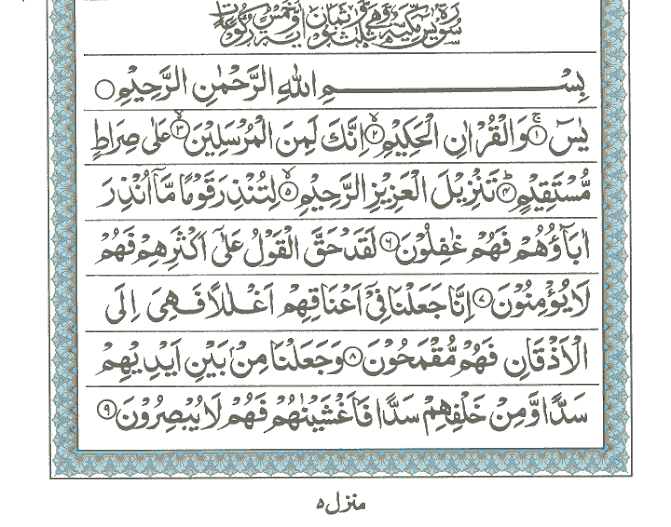 سورة يس مكية وهي ثلث وثمانون اية وخمس ركوعات
بِسْمِ اللهِ الرَّحْمٰنِ الرَّحِيْمِ ○
يٰسٓ ۚ﴿۱﴾ وَالْقُرْاٰنِ الْحَكِيْمِ ۙ﴿۲﴾ اِنَّكَ لَمِنَ الْمُرْسَلِيْنَ ۙ﴿۳﴾ عَلٰى صِرَاطٍ
مُّسْتَقِيْمٍ ؕ﴿۴﴾ تَنْزِيْلَ الْعَزِيْزِ الرَّحِيْمِ ۙ﴿۵﴾ لِتُنْذِرَ قَوْمًا مَّاۤ اُنْذِرَ
اٰبَآؤُهُمْ فَهُمْ غٰفِلُوْنَ ﴿۶﴾ لَقَدْ حَقَّ الْقَوْلُ عَلٰۤى اَكْثَرِهِمْ فَهُمْ
لَا يُؤْمِنُوْنَ ﴿۷﴾ اِنَّا جَعَلْنَا فِيْۤ اَعْنَاقِهِمْ اَغْلٰلًا فَهِيَ اِلَى
الْاَذْقَانِ فَهُمْ مُّقْمَحُوْنَ ﴿۸﴾ وَجَعَلْنَا مِنْۢ بَيْنِ اَيْدِيْهِمْ
سَدًّا وَّمِنْ خَلْفِهِمْ سَدًّا فَاَغْشَيْنٰهُمْ فَهُمْ لَا يُبْصِرُوْنَ ﴿۹﴾
منزل ۵